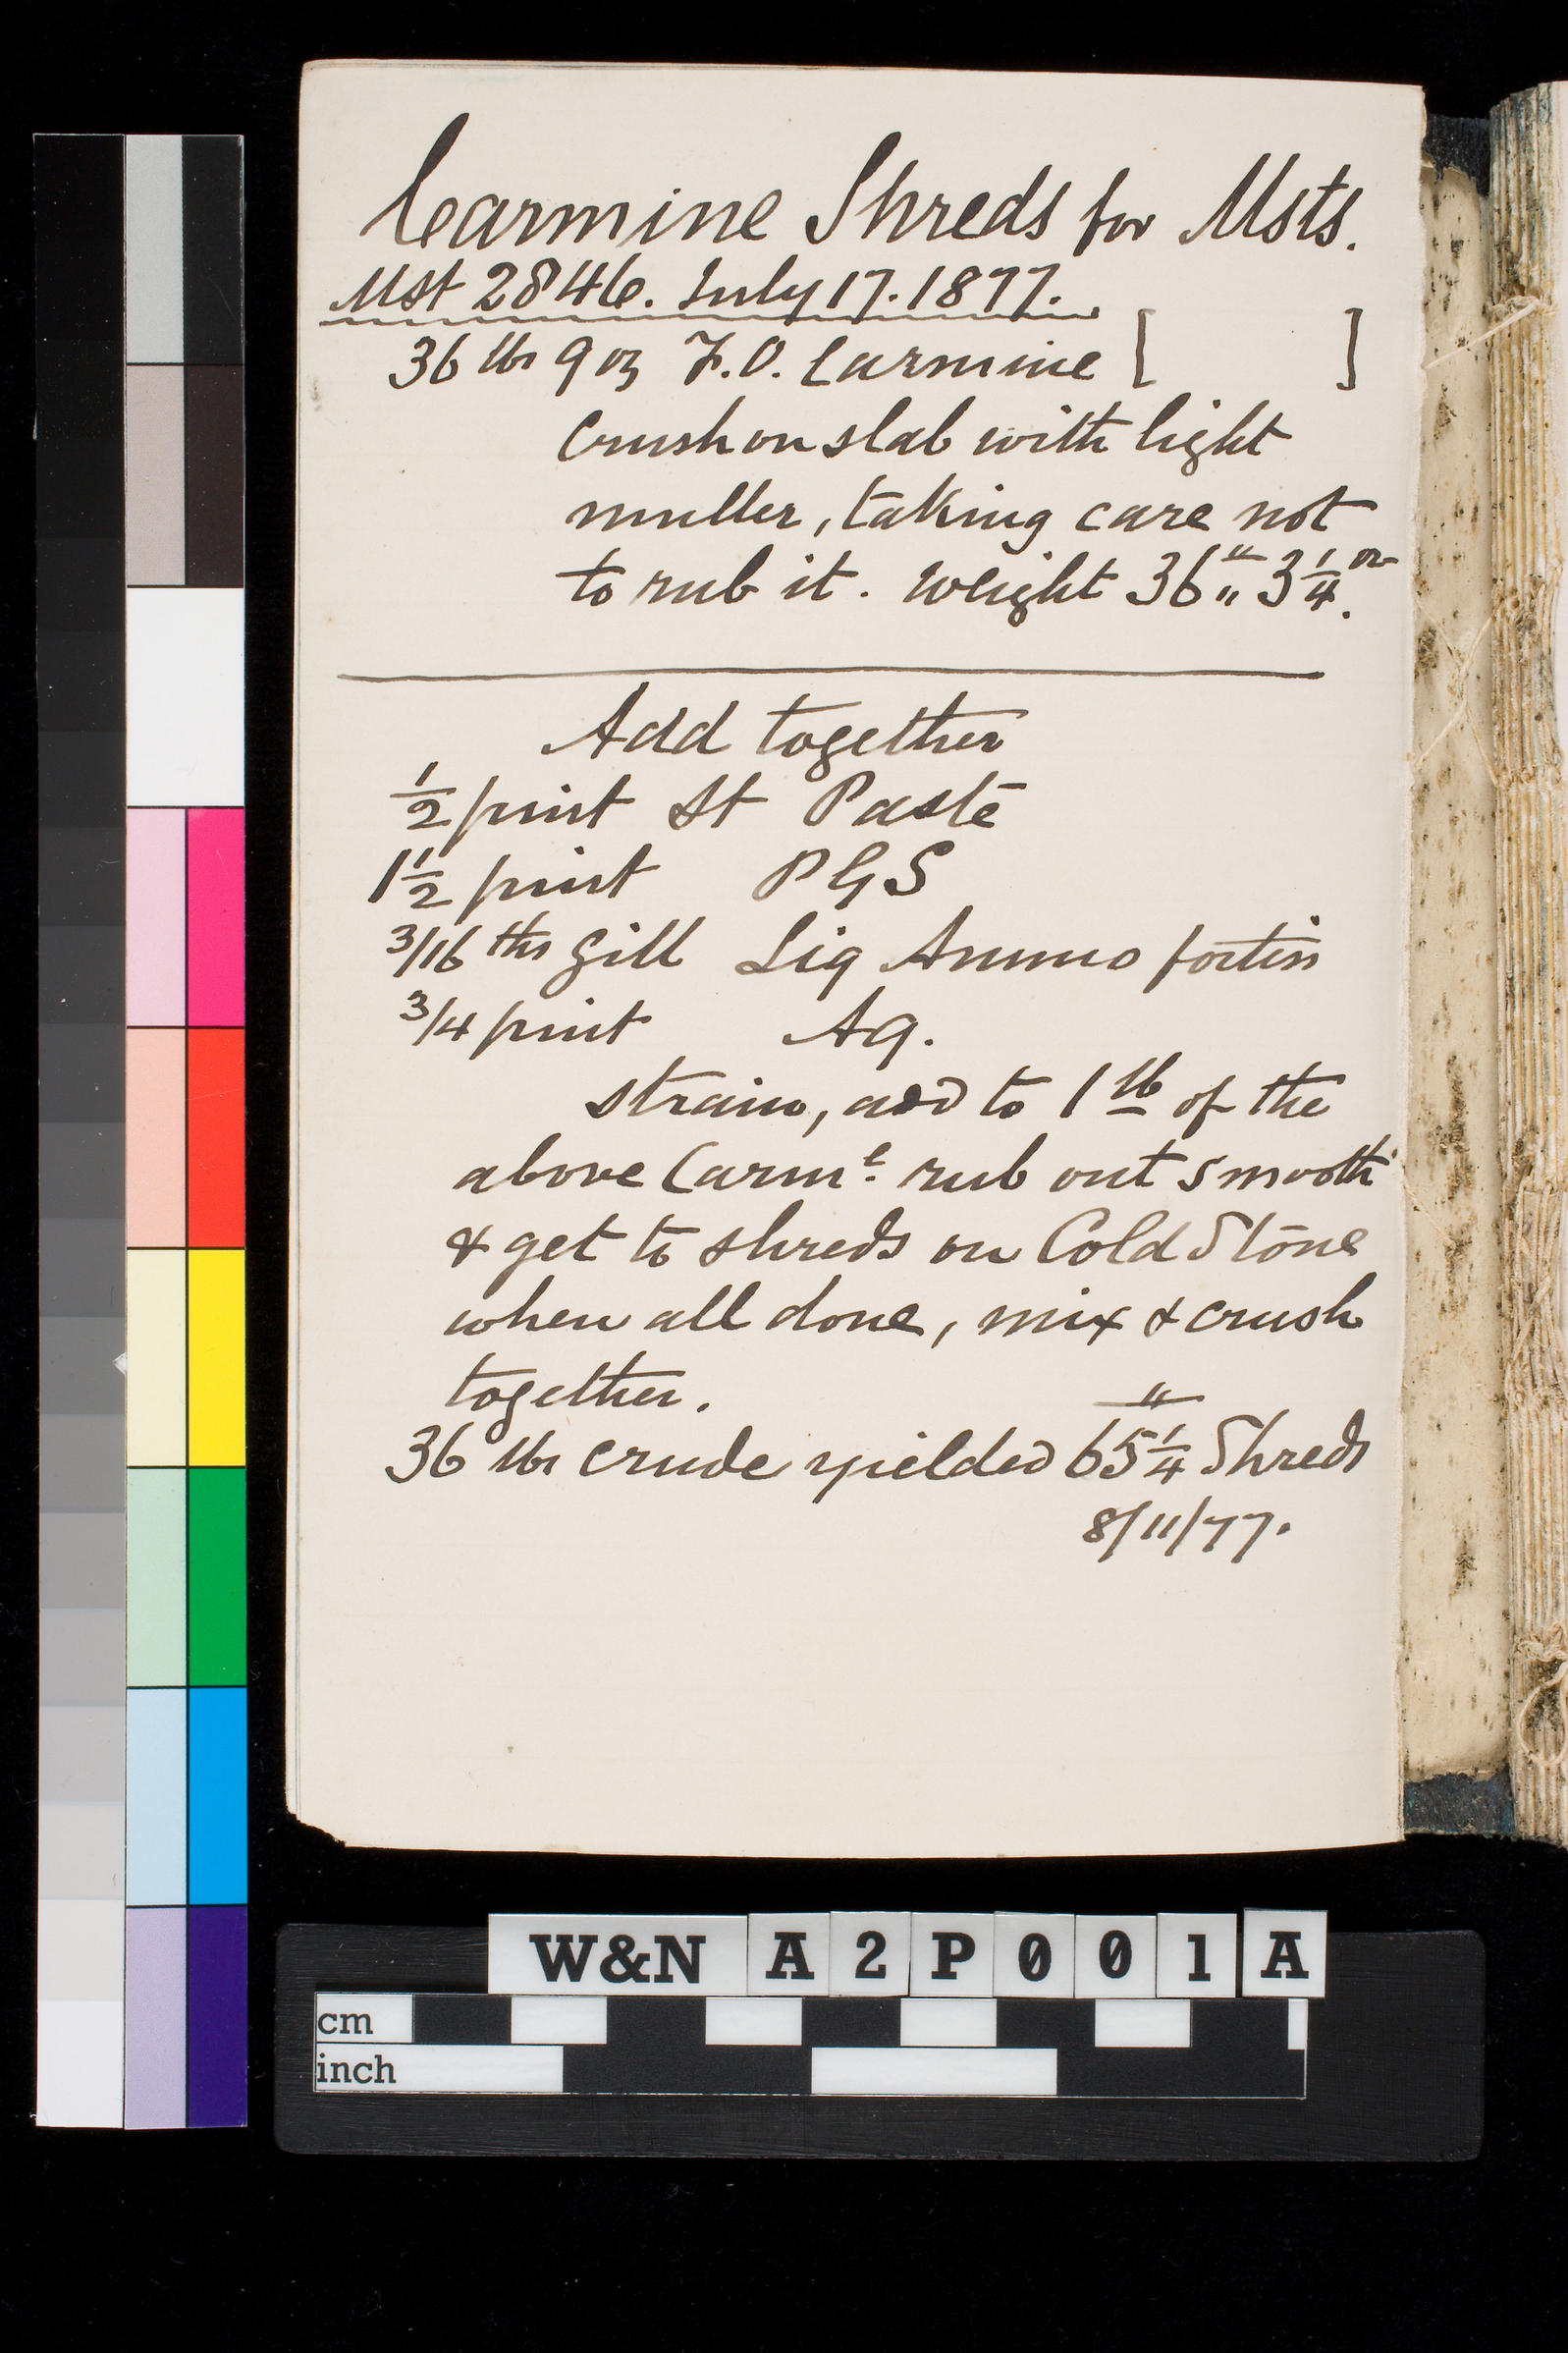 Carmine Shreds for Msts.
Mst 2846. July 17. 1877.
36 lbs 9 oz F.O. Carmine [ ]
Crush on slab with light
muller, taking care not
to rub it. Weight 36 " 3 1/4 oz.
Add together
1/2 pint St Paste
1 1/2 pint PGS
3/16 ths Gill Liq Ammo fortiss
3/4 pint Aq.
strain, add to 1 lb of the
above Carm.e rub out smooth
& get to shreds on Cold Stone
when all done, mix & crush
together.
36 lbs crude yielded 65 1/4 " Shreds
8/11/77.
W&N A2P001A
cm
inch